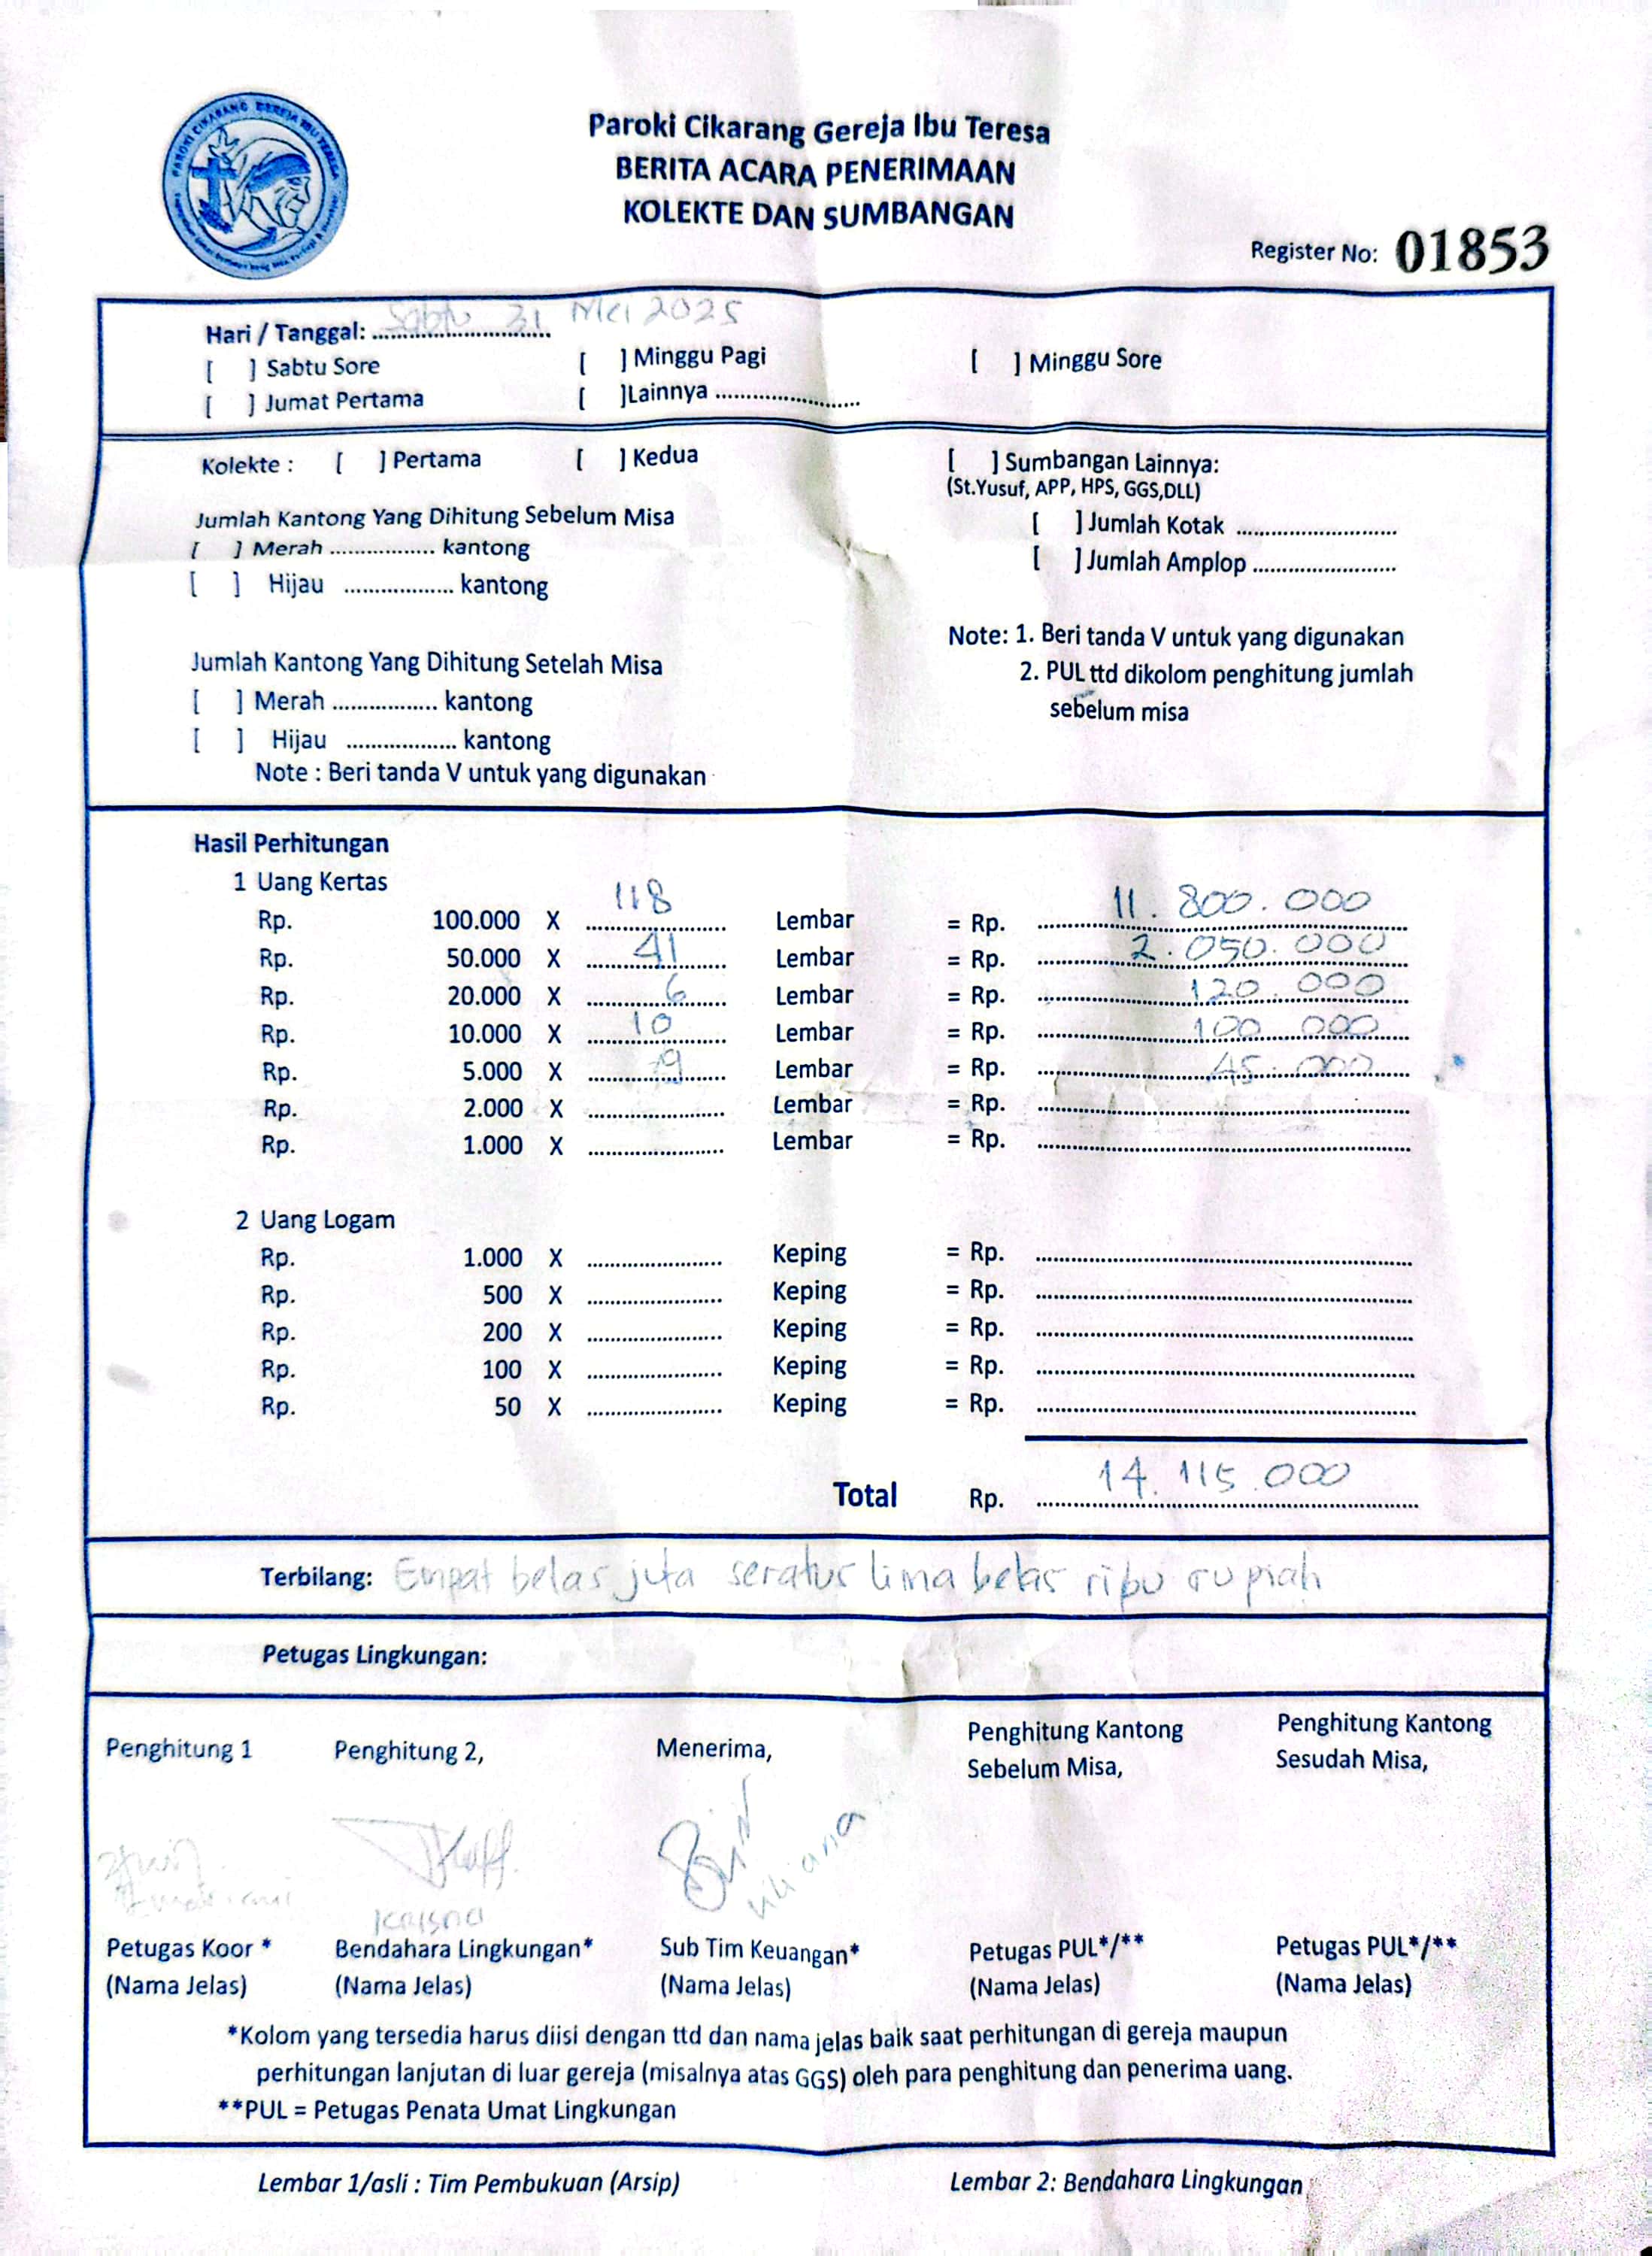 PAROKI CIKARANG GEREJA IBU TERESA
Paroki Cikarang Gereja Ibu Teresa
BERITA ACARA PENERIMAAN
KOLEKTE DAN SUMBANGAN
Register No: 01853
Hari / Tanggal: Sabtu 31 Mei 2025
[ ] Sabtu Sore [ ] Minggu Pagi [ ] Minggu Sore
[ ] Jumat Pertama [ ]Lainnya ........................
Kolekte : [ ] Pertama [ ] Kedua [ ] Sumbangan Lainnya:
(St.Yusuf, APP, HPS, GGS,DLL)
Jumlah Kantong Yang Dihitung Sebelum Misa [ ] Jumlah Kotak ..........................
[ ] Merah ................. kantong [ ] Jumlah Amplop .......................
[ ] Hijau .................. kantong
Note: 1. Beri tanda V untuk yang digunakan
Jumlah Kantong Yang Dihitung Setelah Misa 2. PUL ttd dikolom penghitung jumlah
[ ] Merah ................. kantong sebelum misa
[ ] Hijau .................. kantong
Note : Beri tanda V untuk yang digunakan
Hasil Perhitungan
1 Uang Kertas
Rp. 100.000 X 118 Lembar = Rp. 11.800.000
Rp. 50.000 X 41 Lembar = Rp. 2.050.000
Rp. 20.000 X 6 Lembar = Rp. 120.000
Rp. 10.000 X 10 Lembar = Rp. 100.000
Rp. 5.000 X 9 Lembar = Rp. 45.000
Rp. 2.000 X ...................... Lembar = Rp. ..............................
Rp. 1.000 X ...................... Lembar = Rp. ..............................
2 Uang Logam
Rp. 1.000 X ...................... Keping = Rp. ..............................
Rp. 500 X ...................... Keping = Rp. ..............................
Rp. 200 X ...................... Keping = Rp. ..............................
Rp. 100 X ...................... Keping = Rp. ..............................
Rp. 50 X ...................... Keping = Rp. ..............................
Total Rp. 14.115.000
Terbilang: Empat belas juta seratus lima belas ribu rupiah
Petugas Lingkungan:
Penghitung 1 Penghitung 2, Menerima, Penghitung Kantong Sebelum Misa, Penghitung Kantong Sesudah Misa,
Krisna
Petugas Koor * Bendahara Lingkungan* Sub Tim Keuangan* Petugas PUL*/** Petugas PUL*/**
(Nama Jelas) (Nama Jelas) (Nama Jelas) (Nama Jelas) (Nama Jelas)
*Kolom yang tersedia harus diisi dengan ttd dan nama jelas baik saat perhitungan di gereja maupun
perhitungan lanjutan di luar gereja (misalnya atas GGS) oleh para penghitung dan penerima uang.
**PUL = Petugas Penata Umat Lingkungan
Lembar 1/asli : Tim Pembukuan (Arsip) Lembar 2: Bendahara Lingkungan